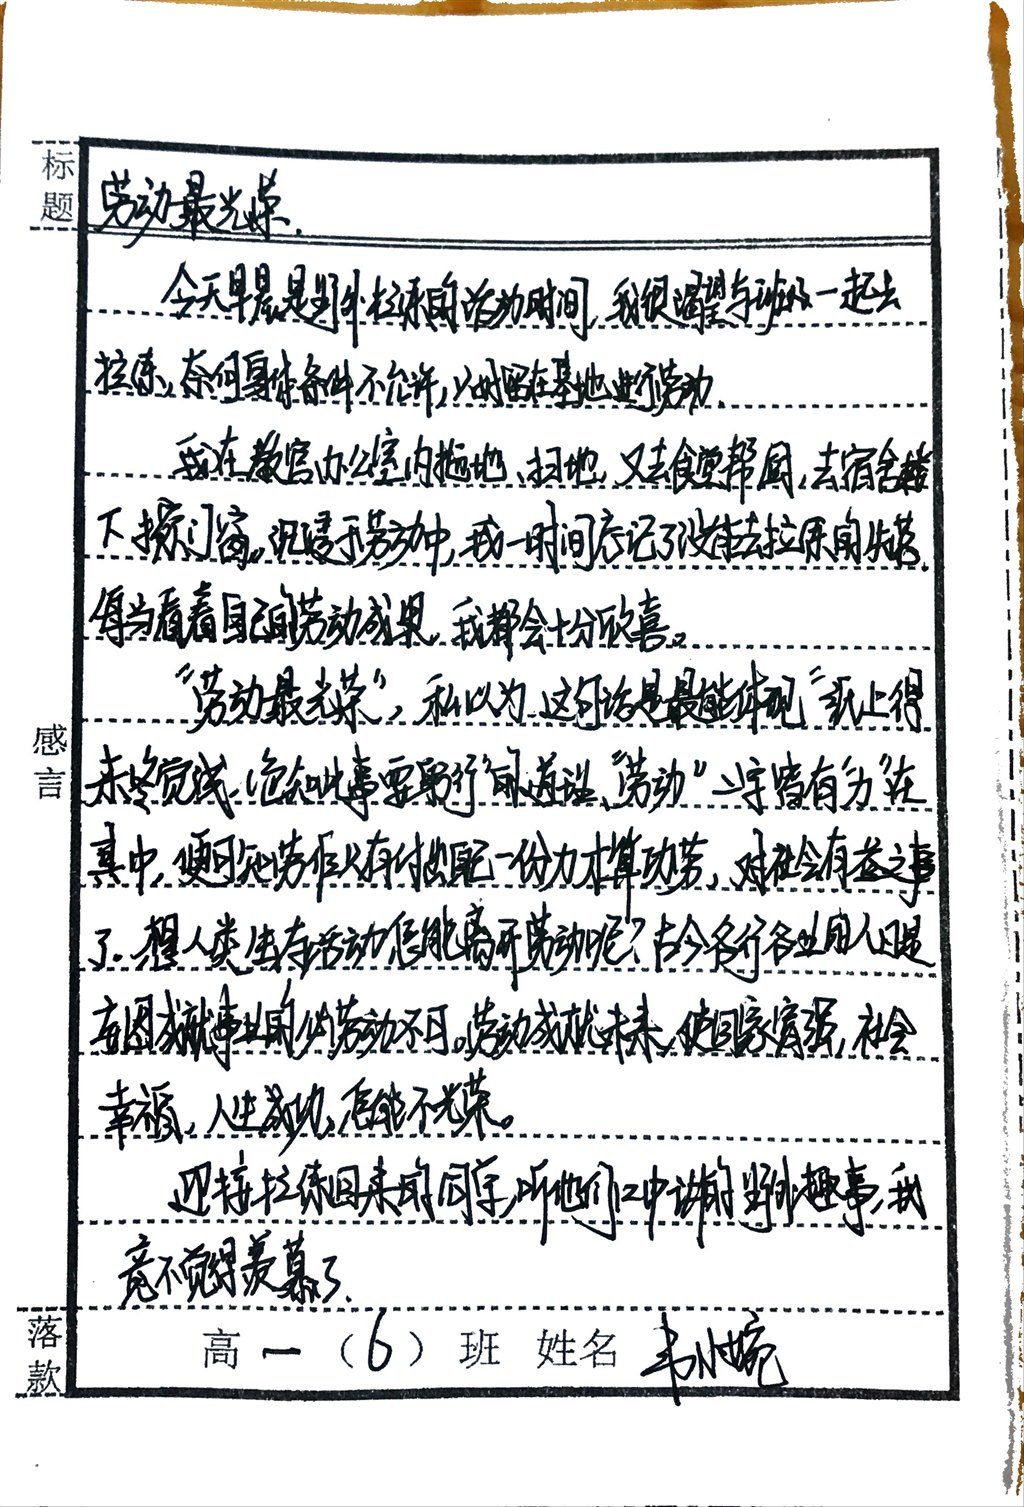 标题
劳动最光荣.
今天早晨是野外拉练的活动时间,我很渴望与班级一起去
拉练,奈何身体条件不允许,只好留在基地进行劳动.
我在教官办公室内拖地、扫地,又去食堂帮厨,去宿舍楼
下擦门窗。沉浸于劳动中,我一时间忘记了没有去拉练的失落,
每当看着自己的劳动成果,我都会十分欣喜。
“劳动最光荣”,私以为这句话是最能体现“纸上得
来终觉浅,绝知此事要躬行”的道理、“劳动”二字皆有“力”在
其中,便可见劳作只有付出一份力才算功劳,对社会有益之事
了.想人类生存活动怎能离开劳动呢?古今各行各业的人
成就事业的少劳动不可。劳动成就未来,使国家富强,社会
幸福,人生成功,怎能不光荣。
迎接拉练回来的同学,听他们口中讲的野外趣事,我
竟不觉得羡慕了.
感言
落款
高一(6)班 姓名 韦小婉